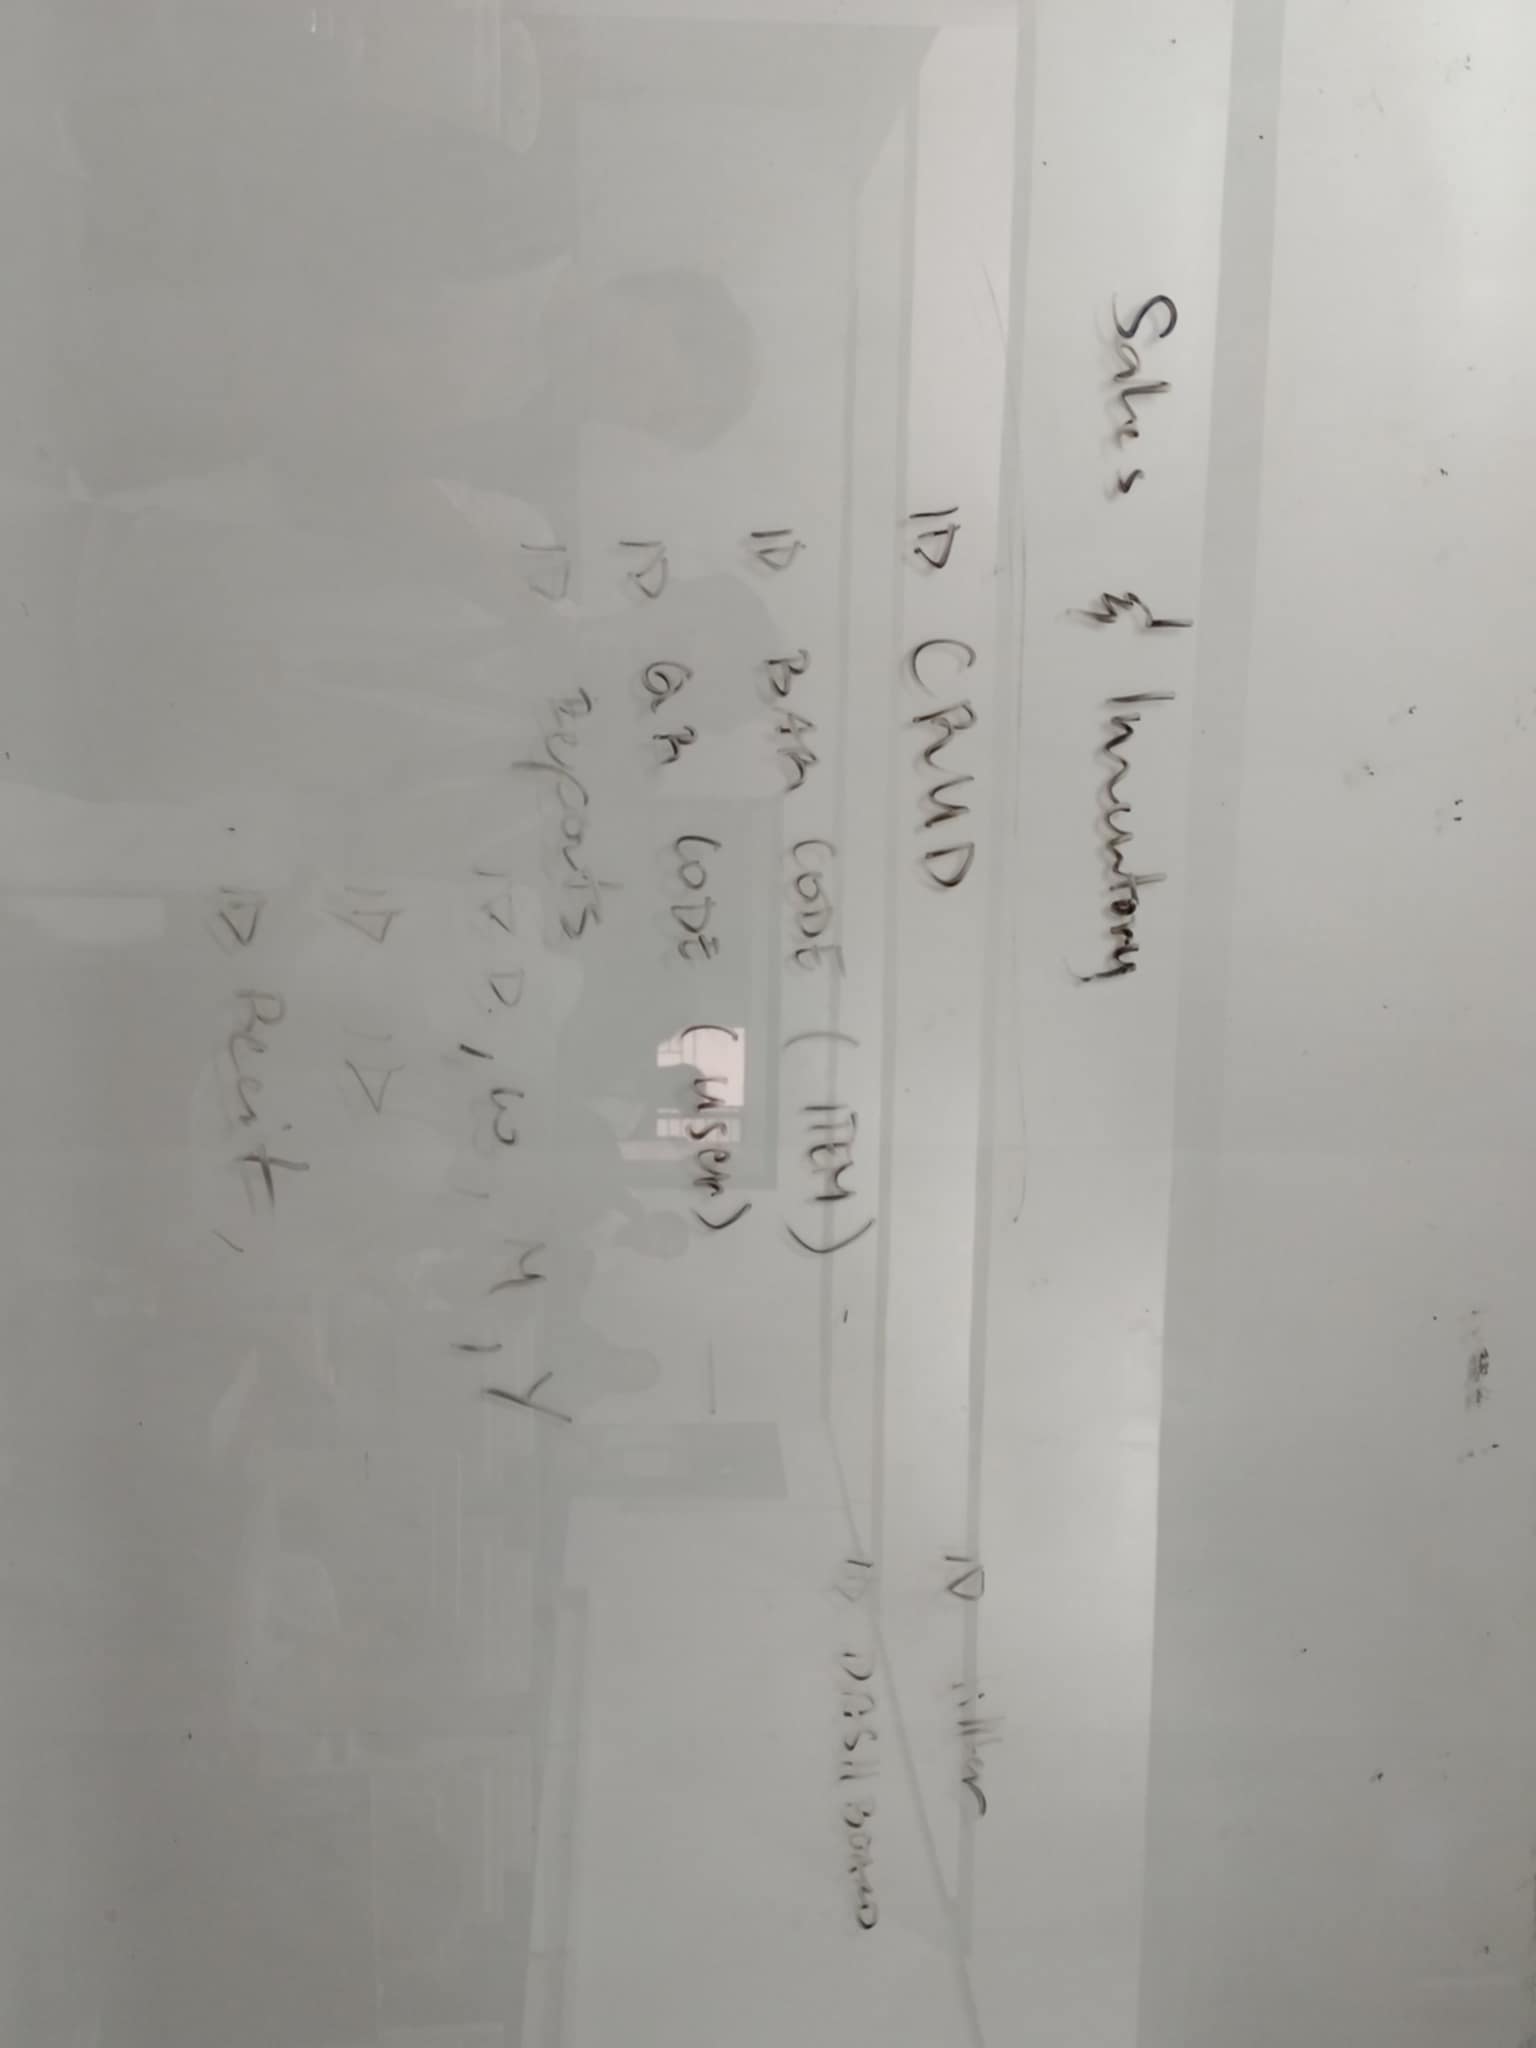 Sales & Inventory
CRUD
BAR CODE (ITEM)
QR CODE (user)
Reports
D, W, M, Y
Receit,
DASHBOARD